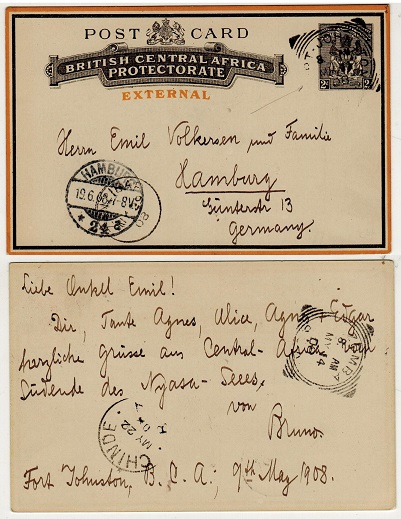 POST CARD
BRITISH CENTRAL AFRICA
PROTECTORATE
EXTERNAL
Herrn Emil Volkersen und Familie
Hamburg
Günterstr 13
Germany.
HAMBURG
19.6.
Liebe Onkel Emil!
Dir, Tante Agnes, Alice, Agnes + Edgar
herzliche Grüsse aus Central-Afrika vom
Südende des Nyasa-Sees.
von
Bruno.
CHINDE
MY 22
MY 14
Fort Johnston, B.C.A., 9th May 1908.